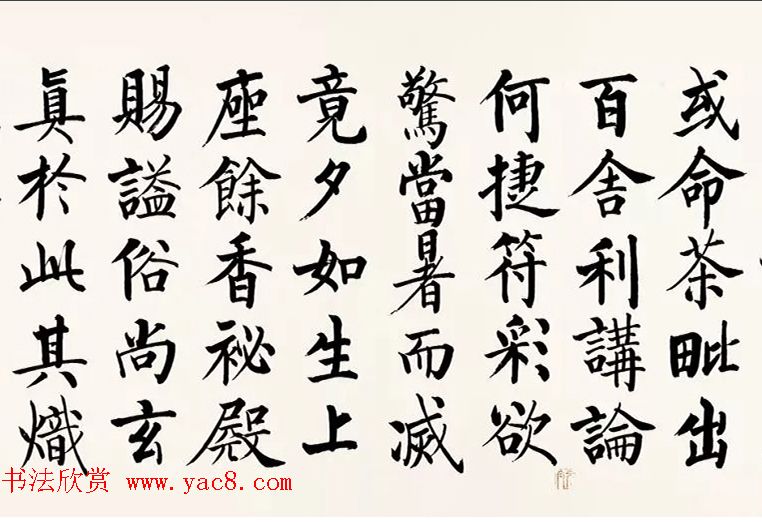 或命茶毗出
百舍利講論
何捷符彩欲
驚當暑而滅
竟夕如生上
座餘香祕殿
賜謚俗尚玄
眞於此其熾
书法欣赏 www.yac8.com